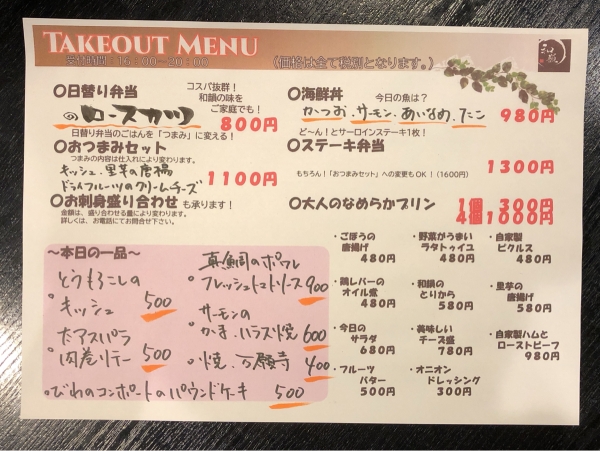 TAKEOUT MENU
受付時間:16:00~20:00
(価格は全て税別となります。)
○日替り弁当
コスパ抜群!
和韻の味を
ご家庭でも!
のロースカツ
800円
日替り弁当のごはんを「つまみ」に変える!
○おつまみセット
つまみの内容は仕入れにより変わります。
キッシュ、里芋の唐揚
ドライフルーツのクリームチーズ
1100円
○お刺身盛り合わせ も承ります!
金額は、盛り合わせる量により変わります。
詳しくは、お電話にてお問合せ下さい。
○海鮮丼
今日の魚は?
かつお、サーモン、あいなめ、たこ
980円
ど~ん!とサーロインステーキ1枚!
○ステーキ弁当
1300円
もちろん!「おつまみセット」への変更もOK!(1600円)
○大人のなめらかプリン
1個 300円
4個1000円
~本日の一品~
とうもろこしの
キッシュ 500
大アスパラ
肉巻ソテー 500
真鯛のポワレ
フレッシュトマトソース 900
サーモンの
かま、ハラス焼 600
焼、万願寺 400
びわのコンポートのパウンドケーキ 500
・ごぼうの
唐揚げ
480円
・野菜がうまい
ラタトゥイユ
480円
・自家製
ピクルス
480円
・鶏レバーの
オイル煮
480円
・和韻の
とりから
580円
・里芋の
唐揚げ
580円
・今日の
サラダ
680円
・美味しい
チーズ盛
780円
・自家製ハムと
ローストビーフ
980円
・フルーツ
バター
500円
・オニオン
ドレッシング
300円